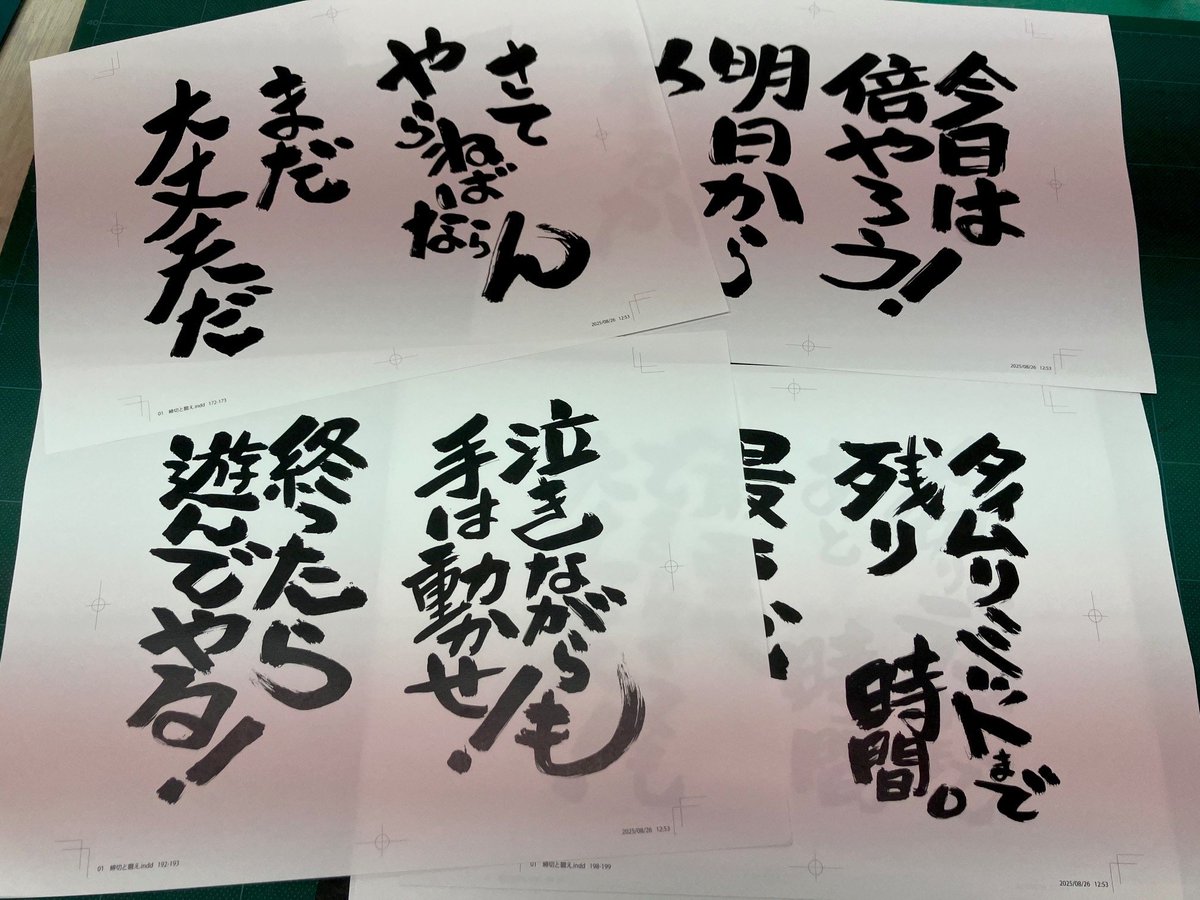 今日は
倍やろう!
明日から
さて
やらねばならん
まだ
大丈夫だ
2025/08/26 12:53
2025/08/26 12:53
01 締切と闘え.indd 172-173
タイムリミットまで
残り
時間。
泣きながらも
手は動かせ!
終ったら
遊んでやる!
2025/08/26 12:53
01 締切と闘え.indd 192-193
01 締切と闘え.indd 198-199
2025/08/26 12:53